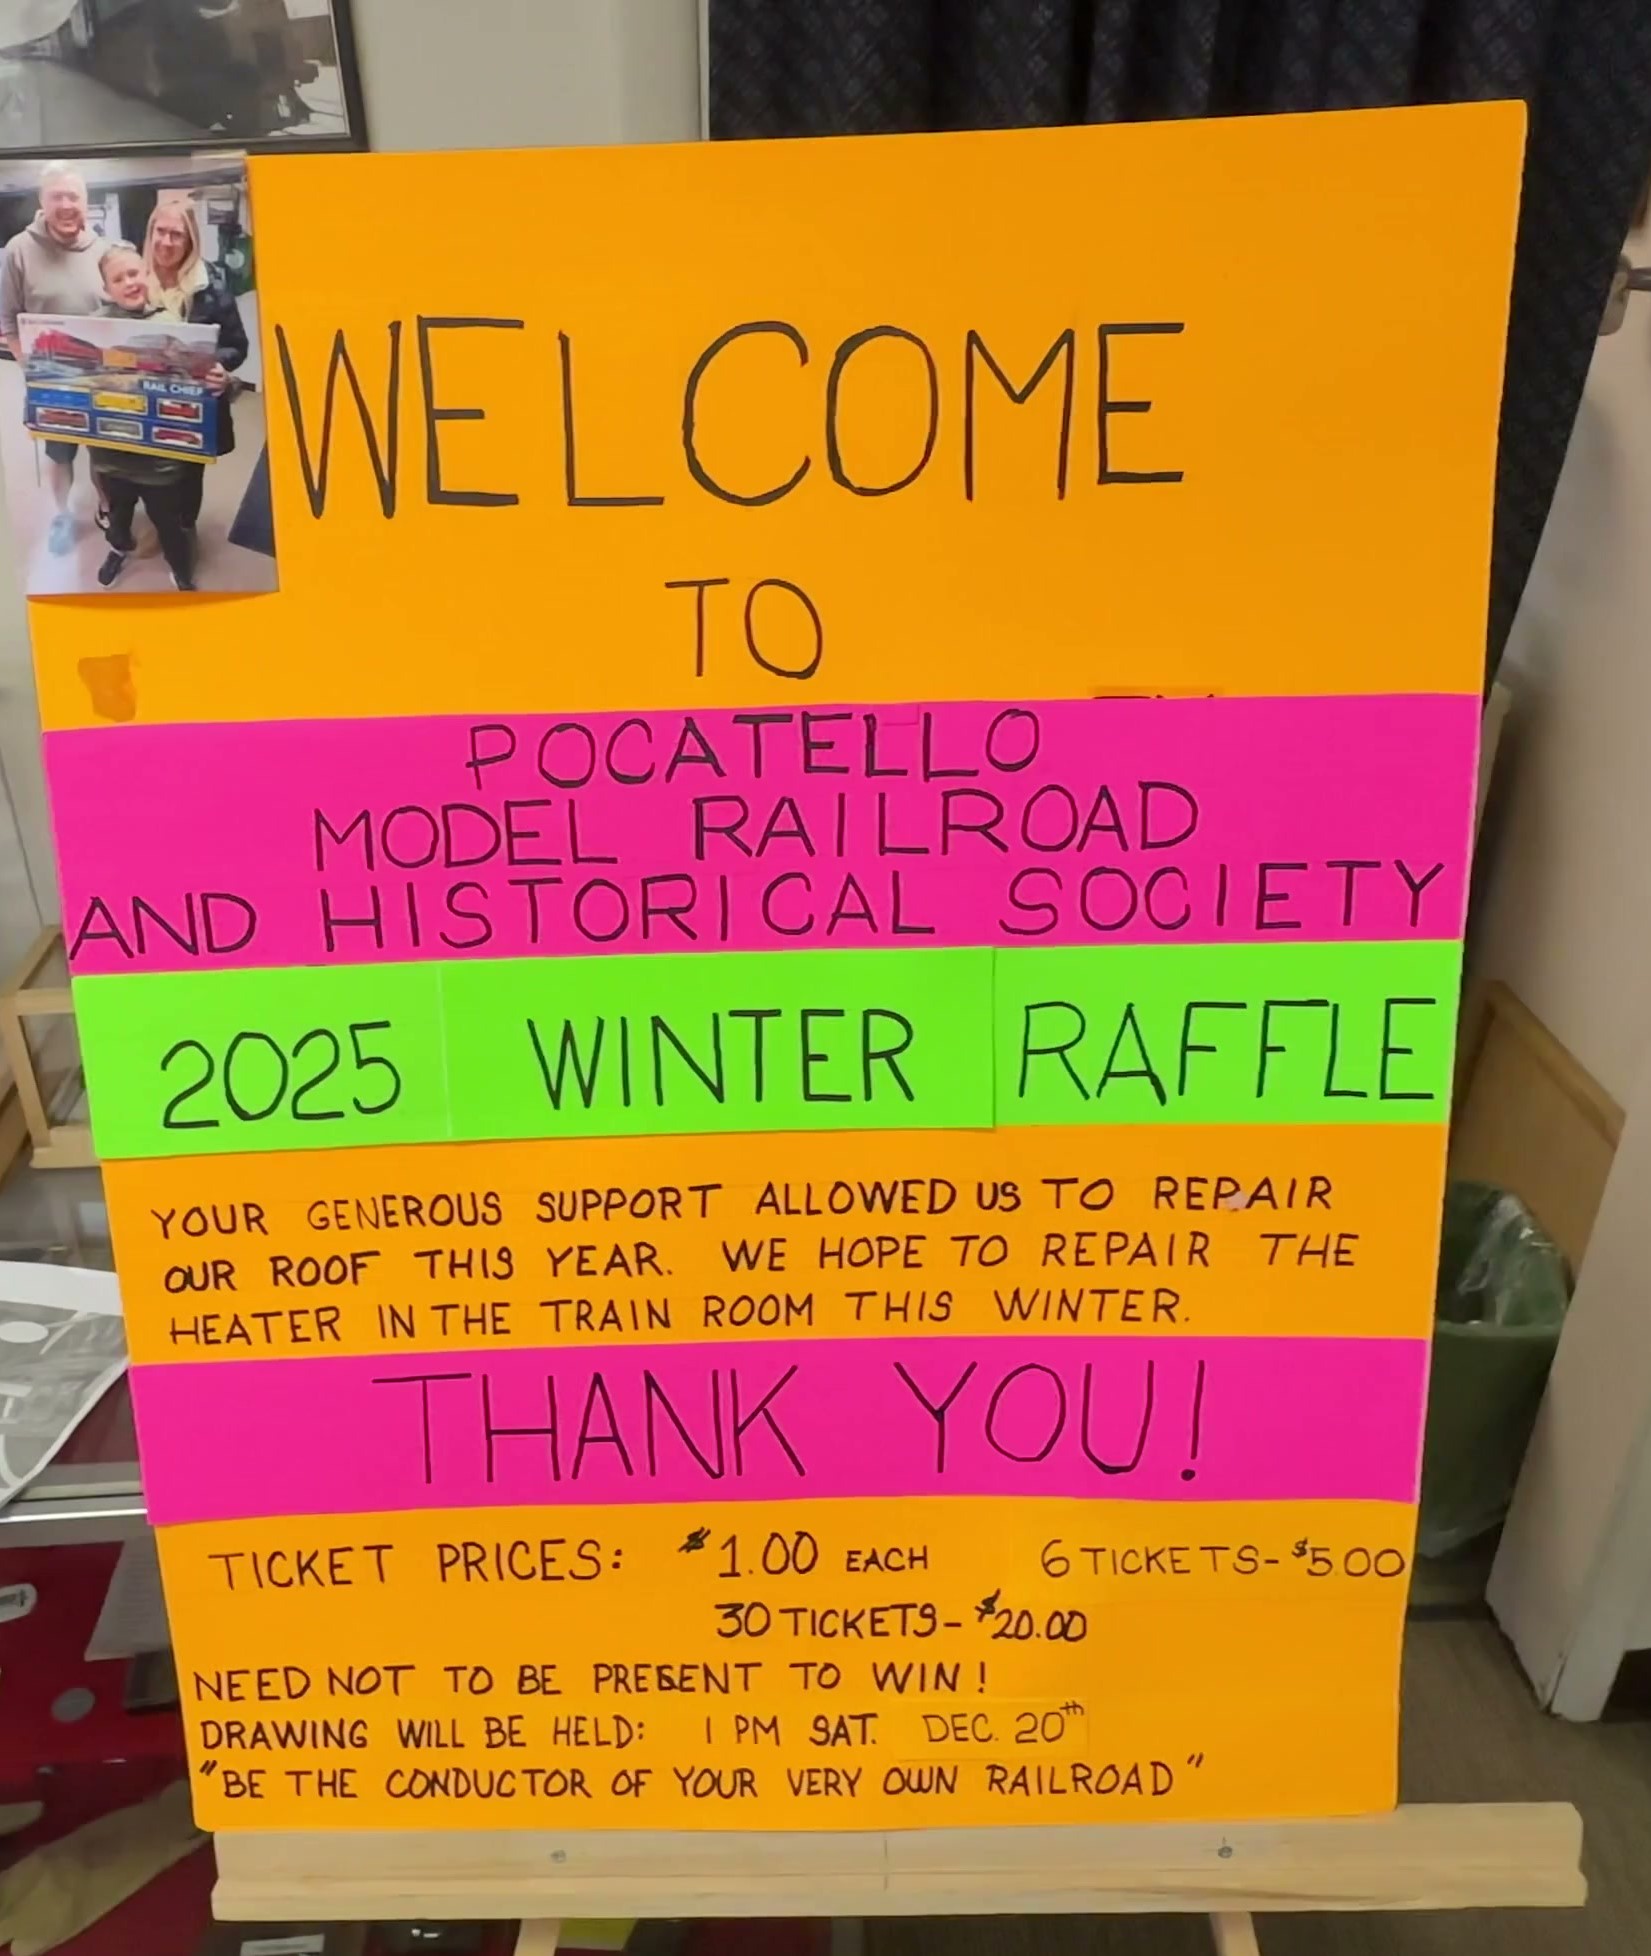 RAIL CHIEF
WELCOME
TO
POCATELLO
MODEL RAILROAD
AND HISTORICAL SOCIETY
2025 WINTER RAFFLE
YOUR GENEROUS SUPPORT ALLOWED US TO REPAIR
OUR ROOF THIS YEAR. WE HOPE TO REPAIR THE
HEATER IN THE TRAIN ROOM THIS WINTER.
THANK YOU!
TICKET PRICES: $1.00 EACH 6 TICKETS-$5.00
30 TICKETS-$20.00
NEED NOT TO BE PRESENT TO WIN!
DRAWING WILL BE HELD: 1 PM SAT. DEC. 20th
"BE THE CONDUCTOR OF YOUR VERY OWN RAILROAD"